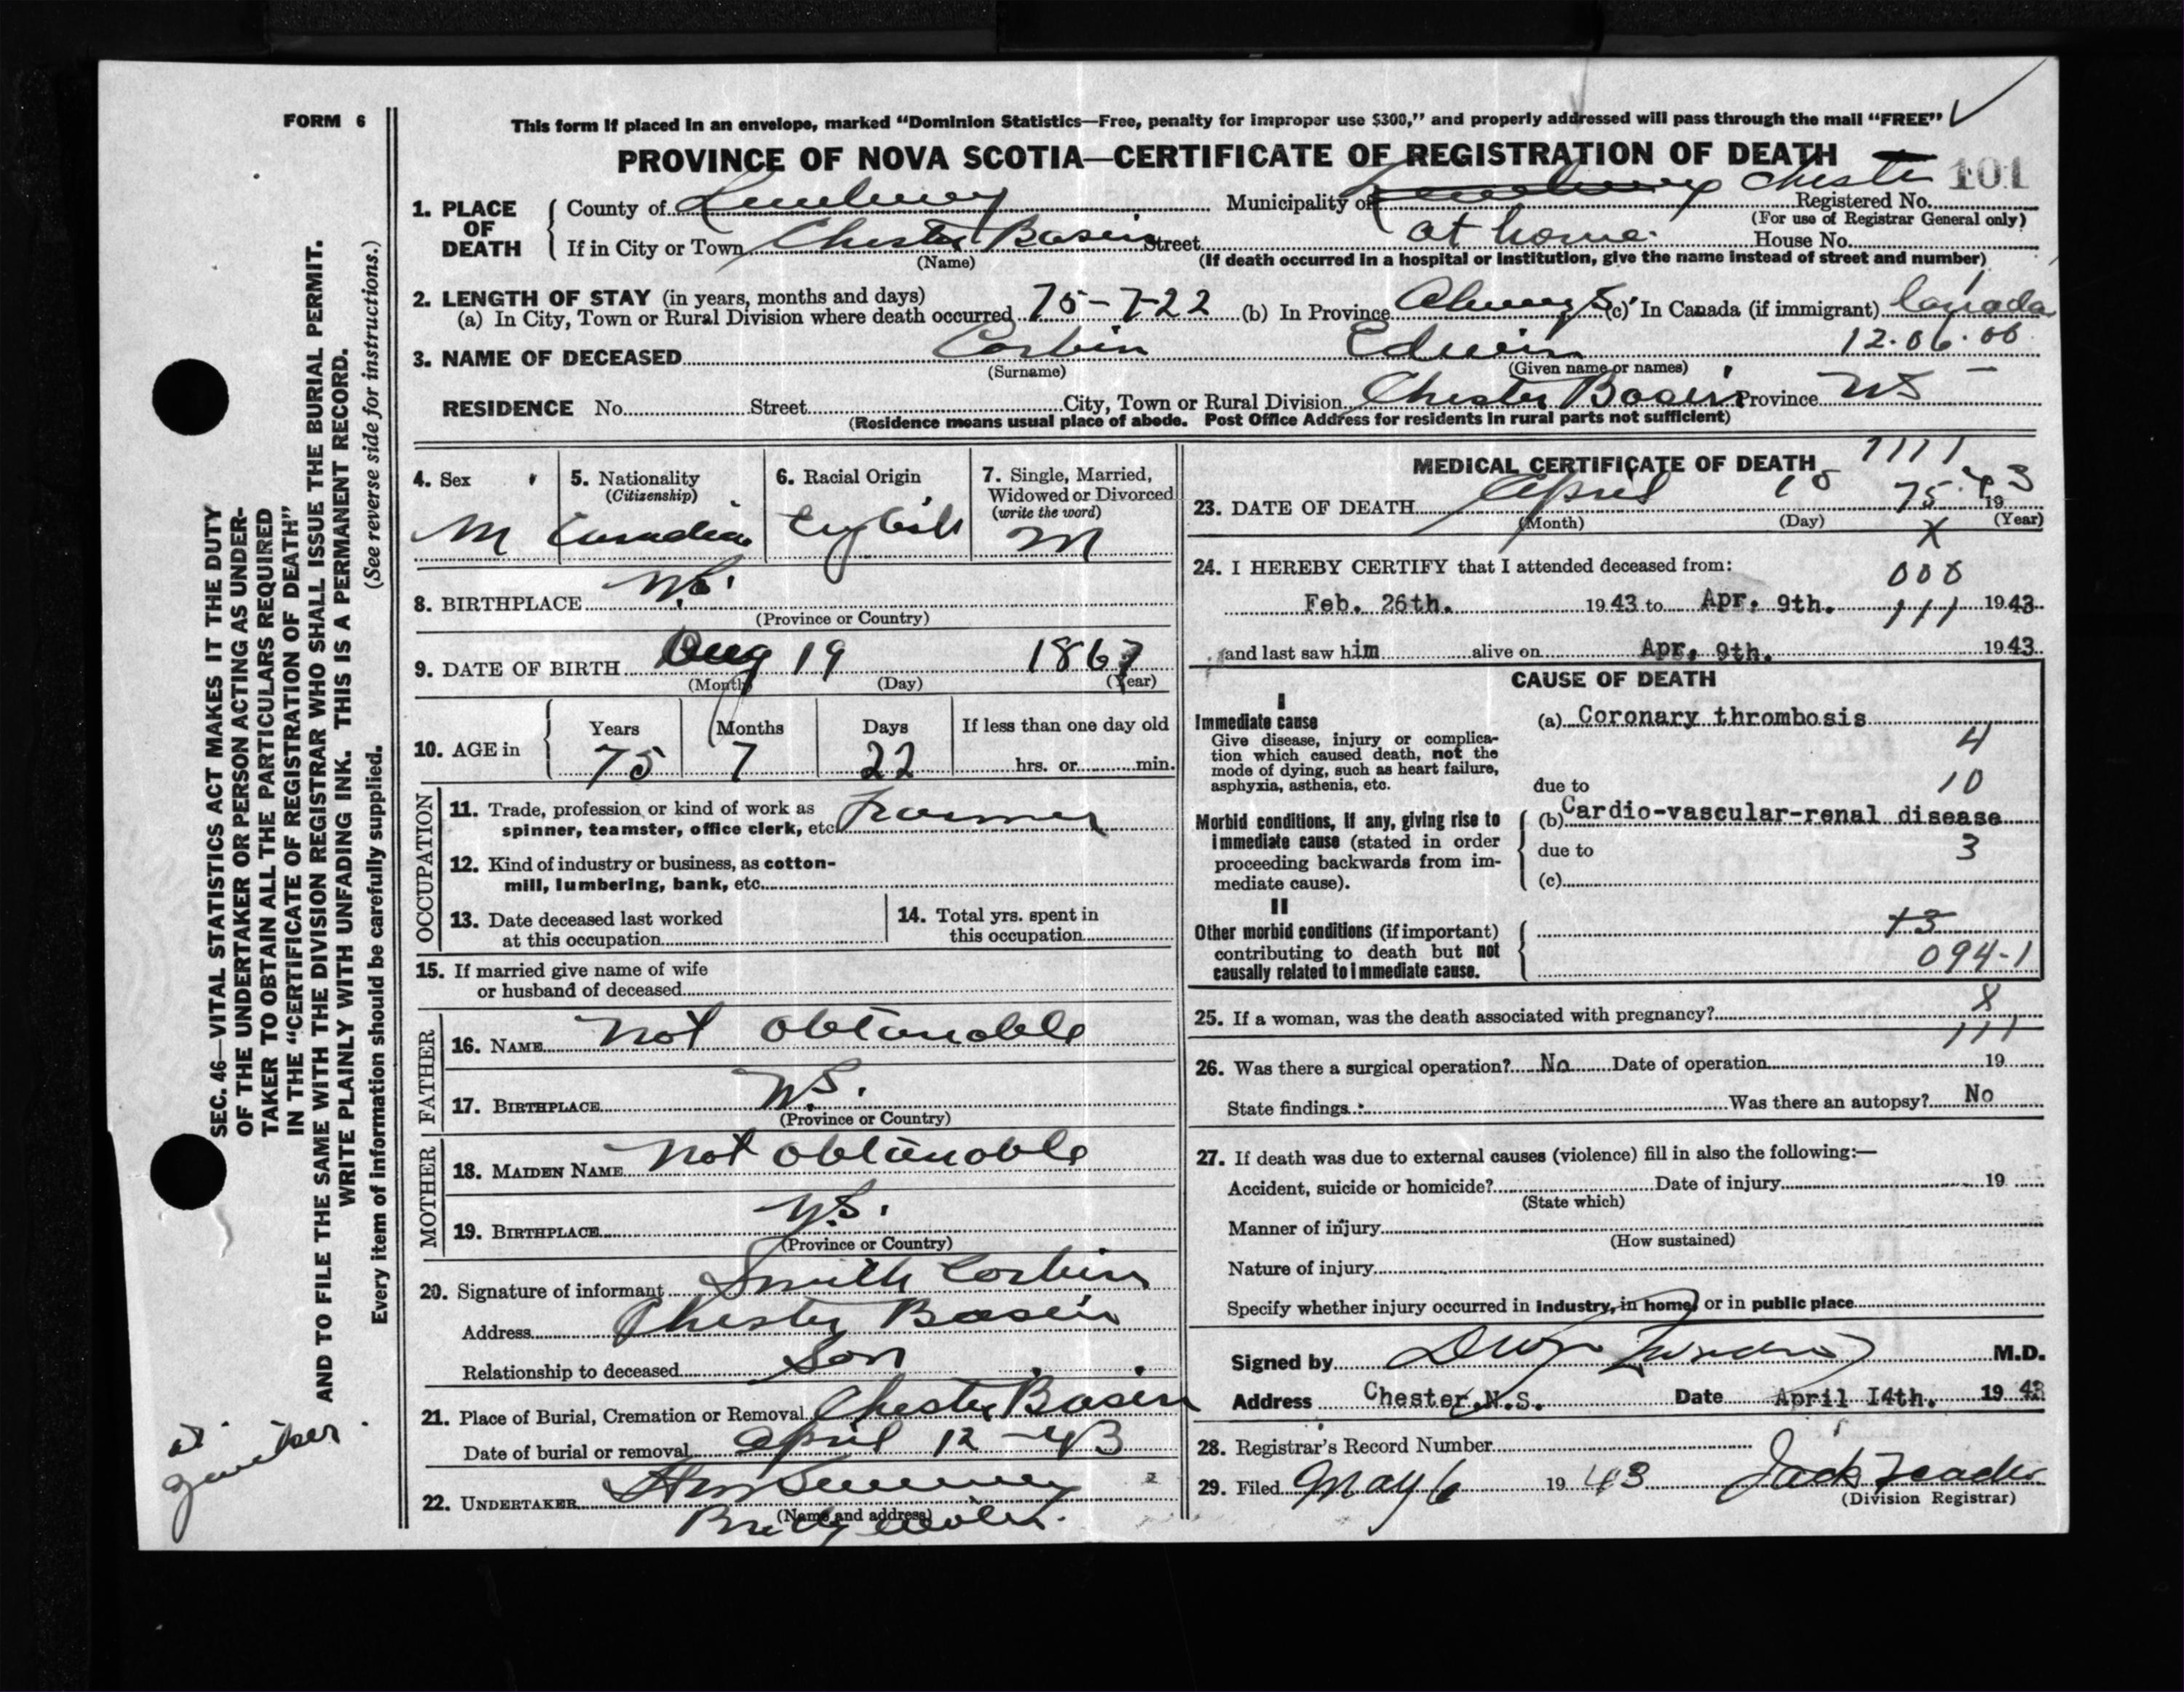 FORM 6
This form if placed in an envelope, marked "Dominion Statistics—Free, penalty for improper use $300," and properly addressed will pass through the mail "FREE"
PROVINCE OF NOVA SCOTIA—CERTIFICATE OF REGISTRATION OF DEATH
101
1. PLACE OF DEATH
County of Lunenburg Municipality of Chester Registered No.
(For use of Registrar General only)
If in City or Town Chester Basin Street at home House No.
(Name) (If death occurred in a hospital or institution, give the name instead of street and number)
2. LENGTH OF STAY (in years, months and days)
(a) In City, Town or Rural Division where death occurred 75-7-22 (b) In Province Always (c) In Canada (if immigrant) Canada
12.06.00
3. NAME OF DECEASED Corbin Edwin
(Surname) (Given name or names)
RESIDENCE No. Street City, Town or Rural Division Chester Basin Province NS
(Residence means usual place of abode. Post Office Address for residents in rural parts not sufficient)
4. Sex M
5. Nationality (Citizenship) Canadian
6. Racial Origin English
7. Single, Married, Widowed or Divorced (write the word) M
8. BIRTHPLACE N.S.
(Province or Country)
9. DATE OF BIRTH Aug 19 1867
(Month) (Day) (Year)
10. AGE in Years Months Days If less than one day old
75 7 22 hrs. or min.
OCCUPATION
11. Trade, profession or kind of work as
spinner, teamster, office clerk, etc. Farmer
12. Kind of industry or business, as cotton-
mill, lumbering, bank, etc.
13. Date deceased last worked
at this occupation
14. Total yrs. spent in
this occupation
15. If married give name of wife
or husband of deceased
FATHER
16. NAME not obtanable
17. BIRTHPLACE N.S.
(Province or Country)
MOTHER
18. MAIDEN NAME not obtanable
19. BIRTHPLACE N.S.
(Province or Country)
20. Signature of informant Smith Corbin
Address Chester Basin
Relationship to deceased Son
21. Place of Burial, Cremation or Removal Chester Basin
Date of burial or removal April 12 - 43
22. UNDERTAKER
(Name and address)
MEDICAL CERTIFICATE OF DEATH
1111
23. DATE OF DEATH April 10 75 1943
(Month) (Day) (Year)
X
24. I HEREBY CERTIFY that I attended deceased from:
000
Feb. 26th. 1943 to Apr. 9th. 111 1943
and last saw him alive on Apr. 9th. 1943
CAUSE OF DEATH
I
Immediate cause
Give disease, injury or complica-
tion which caused death, not the
mode of dying, such as heart failure,
asphyxia, asthenia, etc.
(a) Coronary thrombosis
4
due to 10
Morbid conditions, if any, giving rise to
immediate cause (stated in order
proceeding backwards from im-
mediate cause).
(b) Cardio-vascular-renal disease
due to 3
(c)
II
Other morbid conditions (if important)
contributing to death but not
causally related to immediate cause.
094-1
25. If a woman, was the death associated with pregnancy? X
111
26. Was there a surgical operation? No Date of operation 19
State findings Was there an autopsy? No
27. If death was due to external causes (violence) fill in also the following:—
Accident, suicide or homicide? Date of injury 19
(State which)
Manner of injury
(How sustained)
Nature of injury
Specify whether injury occurred in industry, in home, or in public place
Signed by M.D.
Address Chester.N.S. Date April 14th. 1943
28. Registrar's Record Number
29. Filed May 6 1943 Jack
(Division Registrar)
SEC. 46—VITAL STATISTICS ACT MAKES IT THE DUTY
OF THE UNDERTAKER OR PERSON ACTING AS UNDER-
TAKER TO OBTAIN ALL THE PARTICULARS REQUIRED
IN THE "CERTIFICATE OF REGISTRATION OF DEATH"
AND TO FILE THE SAME WITH THE DIVISION REGISTRAR WHO SHALL ISSUE THE BURIAL PERMIT.
WRITE PLAINLY WITH UNFADING INK. THIS IS A PERMANENT RECORD.
Every item of information should be carefully supplied. (See reverse side for instructions.)